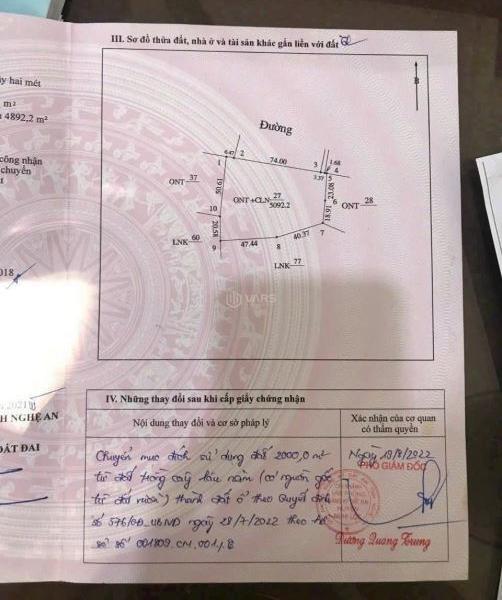 III. Sơ đồ thửa đất, nhà ở và tài sản khác gắn liền với đất
ày hai mét
m²
4892,2 m²
công nhận
chuyển
B
Đường
6.47
2
1
74.00
3
1.68
4
3.37
5
ONT 37
50.61
ONT+CLN 27
5092.2
23.08
6
ONT 28
10
18.91
20.58
LNK 60
9
47.44
8
40.37
7
LNK 77
VARS
018
2021
H NGHỆ AN
ĐẤT ĐAI
IV. Những thay đổi sau khi cấp giấy chứng nhận
Nội dung thay đổi và cơ sở pháp lý
Xác nhận của cơ quan
có thẩm quyền
Chuyển mục đích sử dụng đất 2000,0 m²
từ đất trồng cây lâu năm (có nguồn gốc
từ đất vườn) thành đất ở theo Quyết định
số 576/QĐ.UBND ngày 28/7/2022 theo hồ
sơ số 001809.CN.001
Ngày
/2022
PHÓ GIÁM ĐỐC
Dương Quang Trung